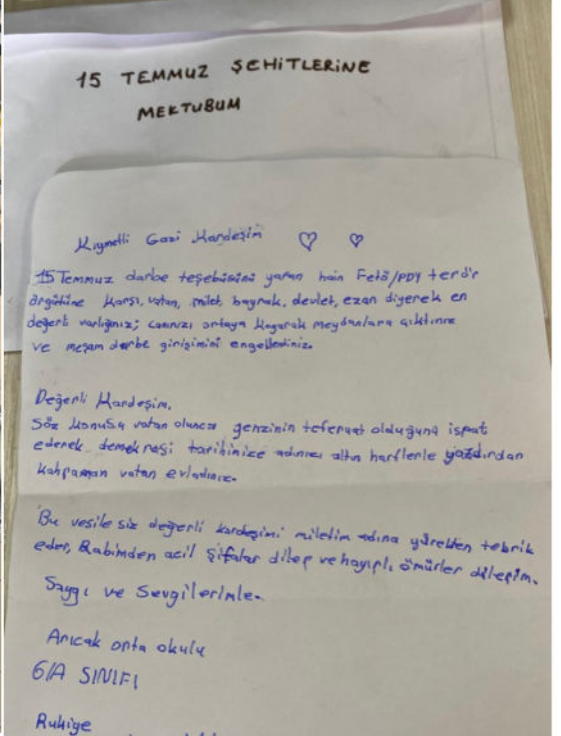 15 TEMMUZ ŞEHİTLERİNE
MEKTUBUM
Kıymetli Gazi Kardeşim
15 Temmuz darbe teşebüsünü yapan hain Fetö/PDY terör
örgütüne karşı, vatan, milet, bayrak, devlet, ezan diyerek en
değerli varlığınız; canınızı ortaya koyarak meydanlara çıktınız
ve meşum darbe girişimini engellediniz.
Değerli Kardeşim,
Söz konusu vatan olunca gerisinin teferuat olduğunu ispat
ederek demokrasi tarihinize adınızı altın harflerle yazdıran
kahraman vatan evladısınız.
Bu vesile siz değerli kardeşimi miletim adına yürekten tebrik
eder, Rabimden acil şifalar diler ve hayırlı ömürler dilerim.
Saygı ve Sevgilerimle.
Arıcak orta okulu
6/A SINIFI
Rukiye